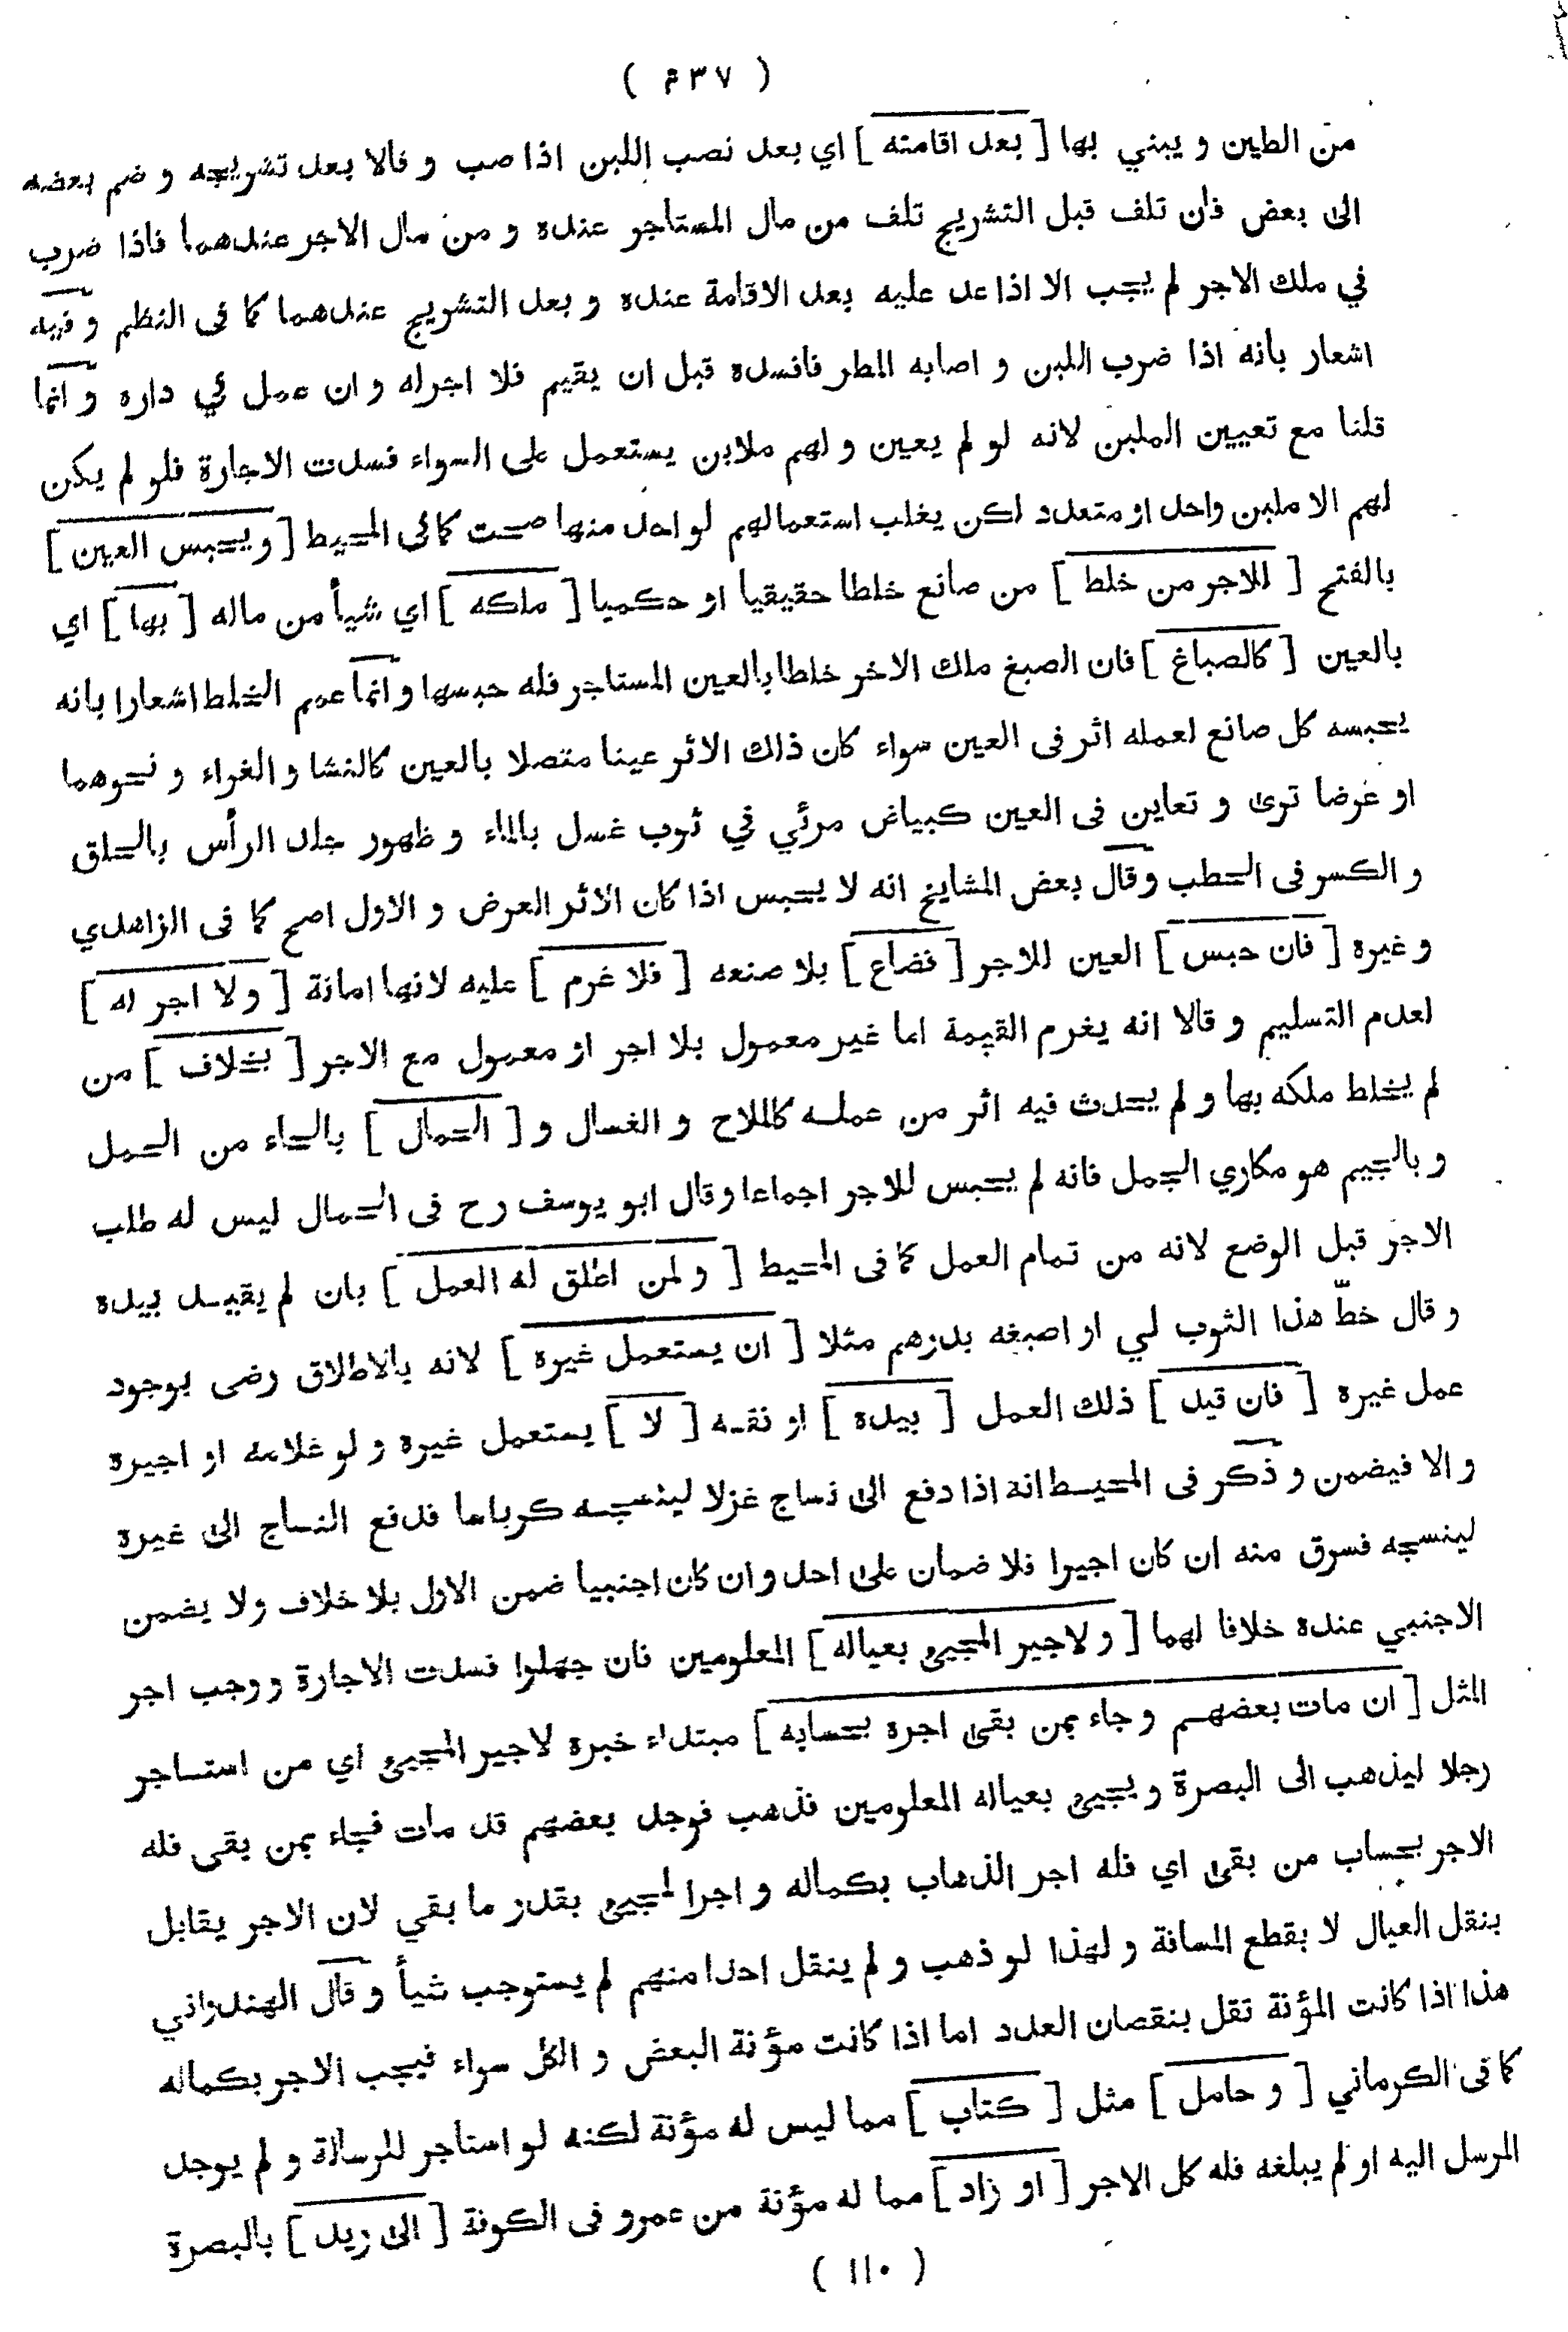 ( ۴۳۷ )
من الطين و يبني بها [ بعد اقامته ] اي بعد نصب اللبن اذا صب و قالا بعد تشريجه و ضم بعضه
الى بعض فان تلف قبل التشريج تلف من مال المستاجر عنده و من مال الاجر عندهما فاذا ضرب
في ملك الاجر لم يجب الا اذا عد عليه بعد الاقامة عنده و بعد التشريج عندهما كما فى النظم و فيه
اشعار بانه اذا ضرب اللبن و اصابه المطر فافسده قبل ان يقيم فلا اجر له و ان عمل في داره و انما
قلنا مع تعيين الملبن لانه لو لم يعين و لهم ملابن يستعمل على السواء فسدت الاجارة فلو لم يكن
لهم الا ملبن واحد او متعدد لكن يغلب استعمالهم لواحد منها صحت كما فى المحيط [ و يحبس العين ]
بالفتح [ للاجر من خلط ] من صانع خلطا حقيقيا او حكميا [ ملكه ] اي شيأ من ماله [ بها ] اي
بالعين [ كالصباغ ] فان الصبغ ملك الاخر خلطا بالعين المستاجر فله حبسها و انما عمم الخلط اشعارا بانه
يحبسه كل صانع لعمله اثر فى العين سواء كان ذلك الاثر عينا متصلا بالعين كالنشا و الغراء و نحوهما
او عرضا ترى و تعاين فى العين كبياض مرئي في ثوب غسل بالماء و ظهور جلد الرأس بالحلق
و الكسر فى الحطب وقال بعض المشايخ انه لا يحبس اذا كان الاثر العرض و الاول اصح كما فى الزاهدي
و غيره [ فان حبس ] العين للاجر [ فضاع ] بلا صنعه [ فلا غرم ] عليه لانها امانة [ و لا اجر له ]
لعدم التسليم و قالا انه يغرم القيمة اما غير معمول بلا اجر او معمول مع الاجر [ بخلاف ] من
لم يخلط ملكه بها و لم يحدث فيه اثر من عمله كالملاح و الغسال و [ الحمال ] بالحاء من الحمل
و بالجيم هو مكاري الجمل فانه لم يحبس للاجر اجماعا و قال ابو يوسف رح فى الحمال ليس له طلب
الاجر قبل الوضع لانه من تمام العمل كما فى المحيط [ و لمن اطلق له العمل ] بان لم يقيد بيده
و قال خطّ هذا الثوب لي او اصبغه بدرهم مثلا [ ان يستعمل غيره ] لانه بالاطلاق رضى بوجود
عمل غيره [ فان قيد ] ذلك العمل [ بيده ] او نفسه [ لا ] يستعمل غيره و لو غلامه او اجيره
و الا فيضمن و ذكر فى المحيط انه اذا دفع الى نساج غزلا لينسجه كرباسا فدفع النساج الى غيره
لينسجه فسرق منه ان كان اجيرا فلا ضمان على احد و ان كان اجنبيا ضمن الاول بلا خلاف ولا يضمن
الاجنبي عنده خلافا لهما [ و لاجير المجيئ بعياله ] المعلومين فان جهلوا فسدت الاجارة و وجب اجر
المثل [ ان مات بعضهم و جاء بمن بقى اجره بحسابه ] مبتداء خبره لاجير المجيئ اي من استاجر
رجلا ليذهب الى البصرة و يجيئ بعياله المعلومين فذهب فوجد بعضهم قد مات فجاء بمن بقى فله
الاجر بحساب من بقى اي فله اجر الذهاب بكماله و اجر المجيئ بقدر ما بقي لان الاجر يقابل
بنقل العيال لا بقطع المسافة و لهذا لو ذهب و لم ينقل احدا منهم لم يستوجب شيأ و قال الهندواني
هذا اذا كانت المؤنة تقل بنقصان العدد اما اذا كانت مؤنة البعض و الكل سواء فيجب الاجر بكماله
كما فى الكرماني [ و حامل ] مثل [ كتاب ] مما ليس له مؤنة لكنه لو استاجر للرسالة و لم يوجد
المرسل اليه او لم يبلغه فله كل الاجر [ او زاد ] مما له مؤنة من عمرو فى الكوفة [ الى زيد ] بالبصرة
( ۱۱۰ )